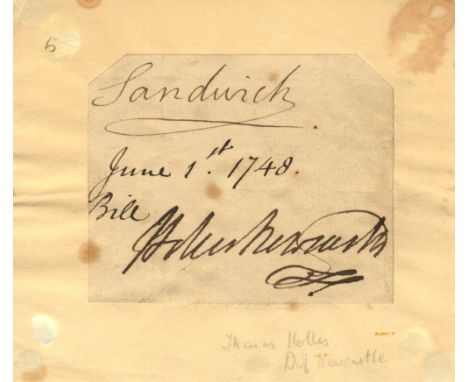 6
Sandwich
June 1st. 1748.
Bill
Holles Newcastle
Thomas Holles.
D. of Newcastle